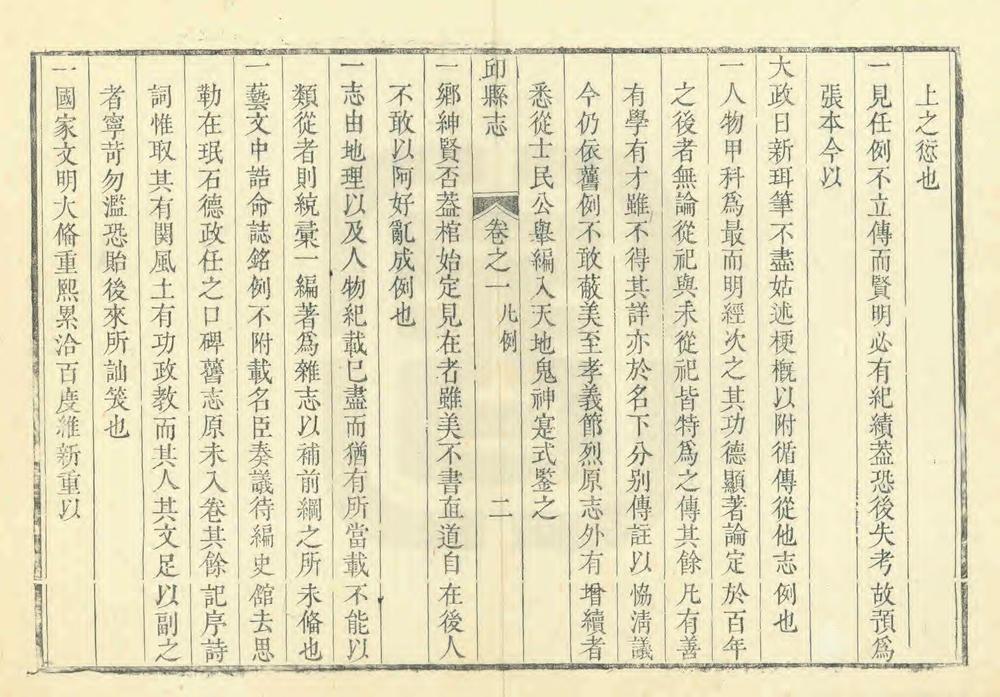 上之愆也
一見任例不立傳而賢明必有紀績葢恐後失考故預為
張本今以
大政日新珥筆不盡姑述梗槪以附循傳從他志例也
一人物甲科爲最而明經次之其功德顯著論定於百年
之後者無論從祀與未從祀皆特爲之傳其餘凡有善
有學有才雖不得其詳亦於名下分别傳註以恊淸議
今仍依舊例不敢蔽美至孝義節烈原志外有增續者
悉從士民公舉編入天地鬼神寔式鑒之
邱縣志
卷之一
凡例
二
一鄉紳賢否葢棺始定見在者雖美不書直道自在後人
不敢以阿好亂成例也
一志由地理以及人物紀載已盡而猶有所當載不能以
類從者則統彙一編著爲雜志以補前綱之所未備也
一藝文中誥命誌銘例不附載名臣奏議待編史館去思
勒在珉石德政任之口碑舊志原未入卷其餘記序詩
詞惟取其有関風土有功政教而其人其文足以副之
者寧苛勿濫恐貽後來所訕笑也
一國家文明大備重熙累洽百度維新重以